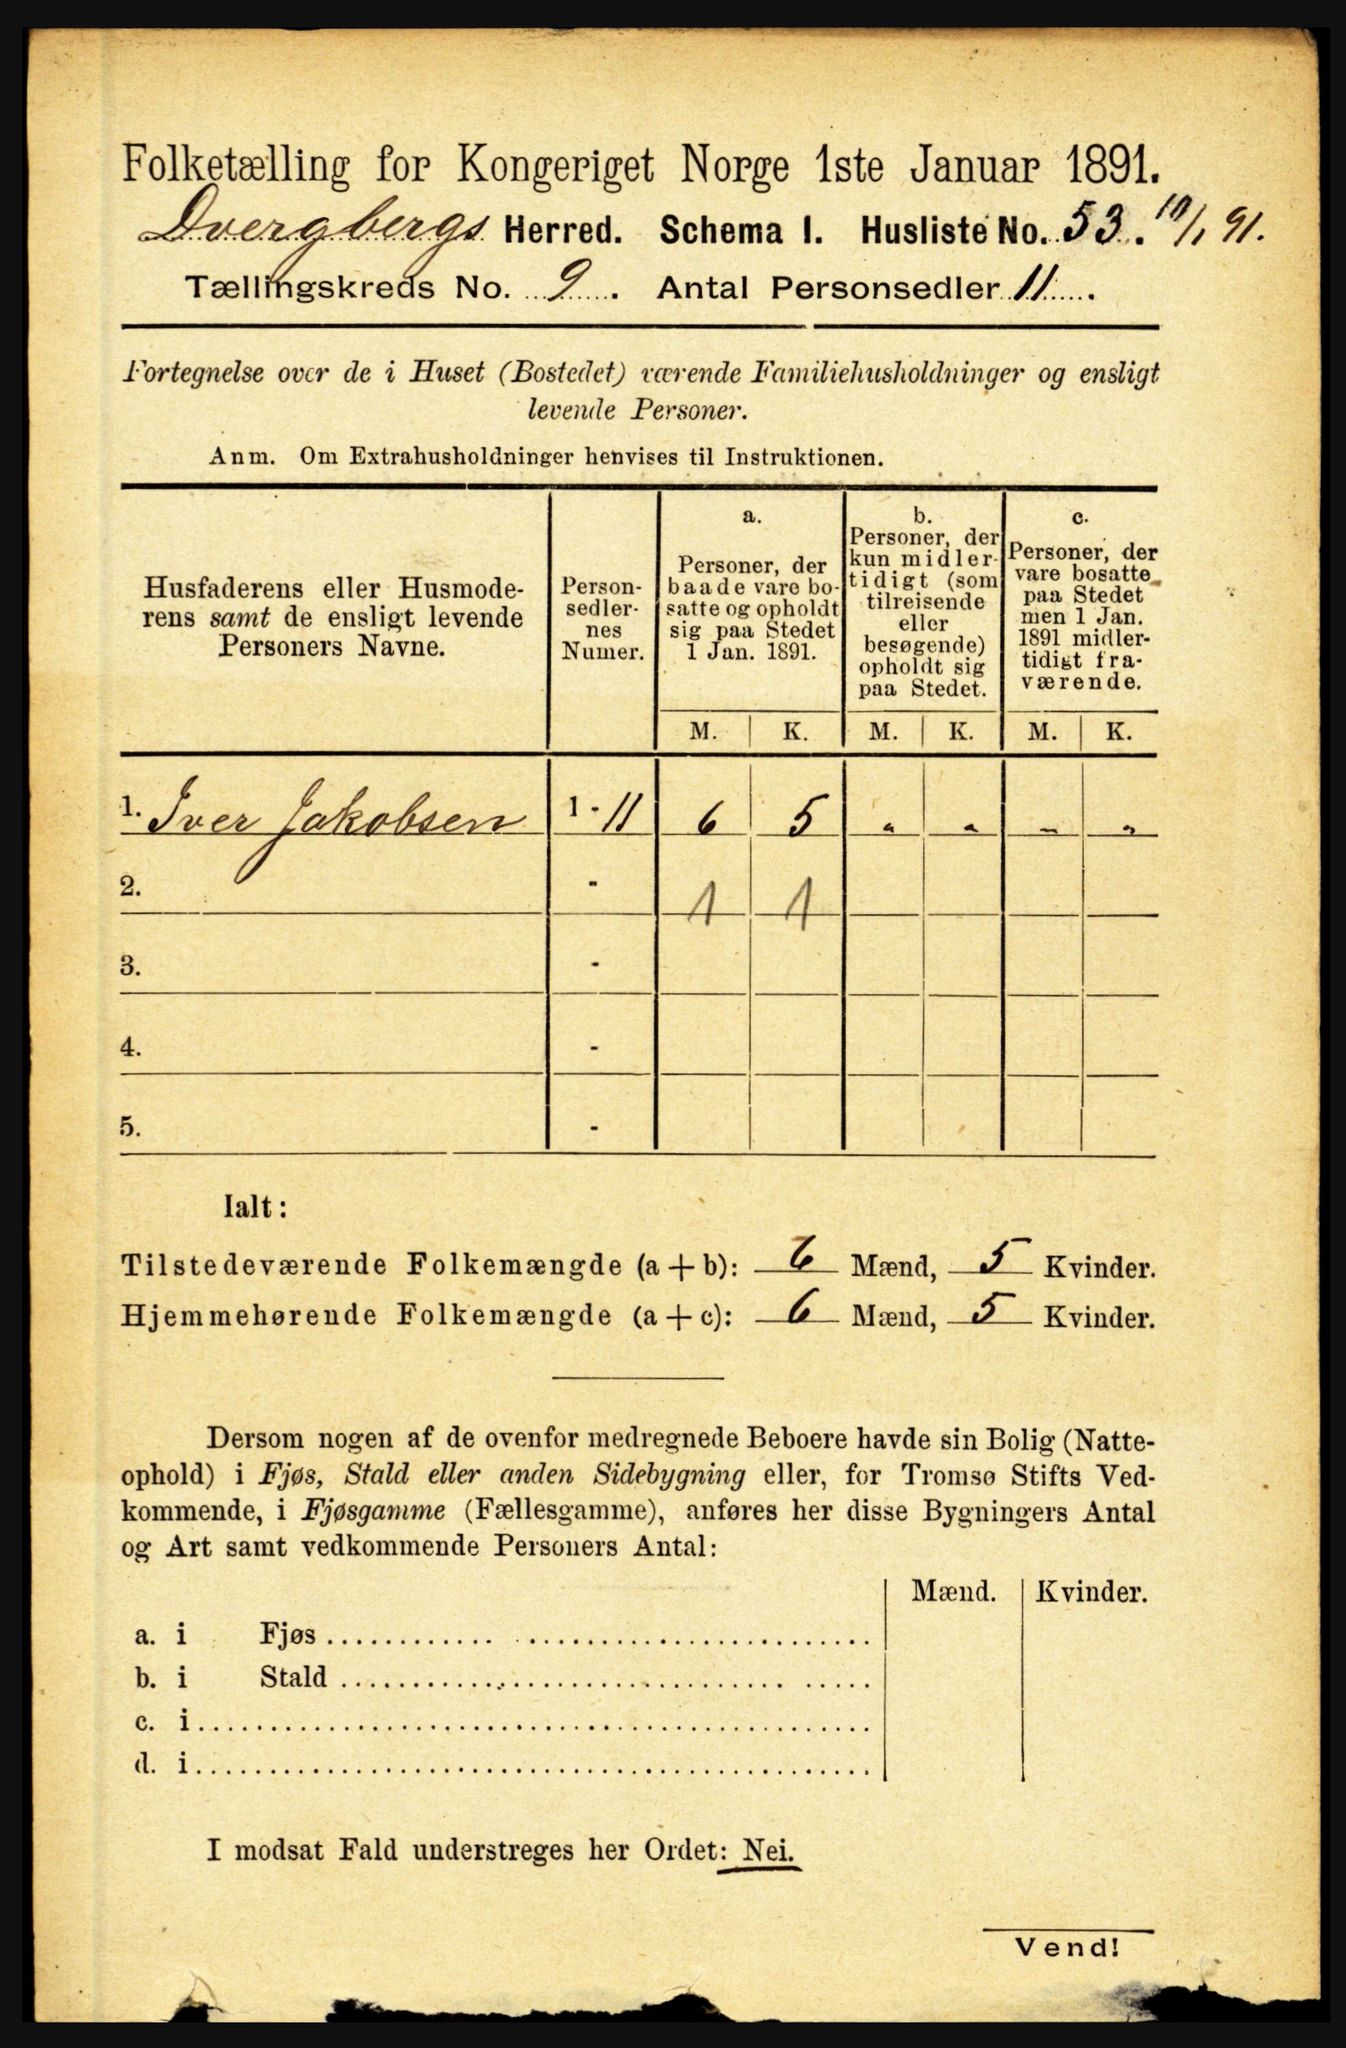 Folketælling for Kongeriget Norge 1ste Januar 1891.
Dvergbergs Herred. Schema I. Husliste No. 53. 10/1 91.
Tællingskreds No. 9. Antal Personsedler 11.
Fortegnelse over de i Huset (Bostedet) værende Familiehusholdninger og ensligt
levende Personer.
Anm. Om Extrahusholdninger henvises til Instruktionen.
Husfaderens eller Husmode-
rens samt de ensligt levende
Personers Navne.
Person-
sedler-
nes
Numer.
a.
Personer, der
baade vare bo-
satte og opholdt
sig paa Stedet
1 Jan. 1891.
b.
Personer, der
kun midler-
tidigt (som
tilreisende
eller
besøgende)
opholdt sig
paa Stedet.
c.
Personer, der
vare bosatte
paa Stedet
men 1 Jan.
1891 midler-
tidigt fra-
værende.
M. K. M. K. M. K.
1. Iver Jakobsen 1 - 11 6 5 „ „ „ „
2. - 1 1
3. -
4. -
5. -
Ialt:
Tilstedeværende Folkemængde (a + b): 6 Mænd, 5 Kvinder.
Hjemmehørende Folkemængde (a + c): 6 Mænd, 5 Kvinder.
Dersom nogen af de ovenfor medregnede Beboere havde sin Bolig (Natte-
ophold) i Fjøs, Stald eller anden Sidebygning eller, for Tromsø Stifts Ved-
kommende, i Fjøsgamme (Fællesgamme), anføres her disse Bygningers Antal
og Art samt vedkommende Personers Antal:
Mænd. Kvinder.
a. i Fjøs
b. i Stald
c. i
d. i
I modsat Fald understreges her Ordet: Nei.
Vend!